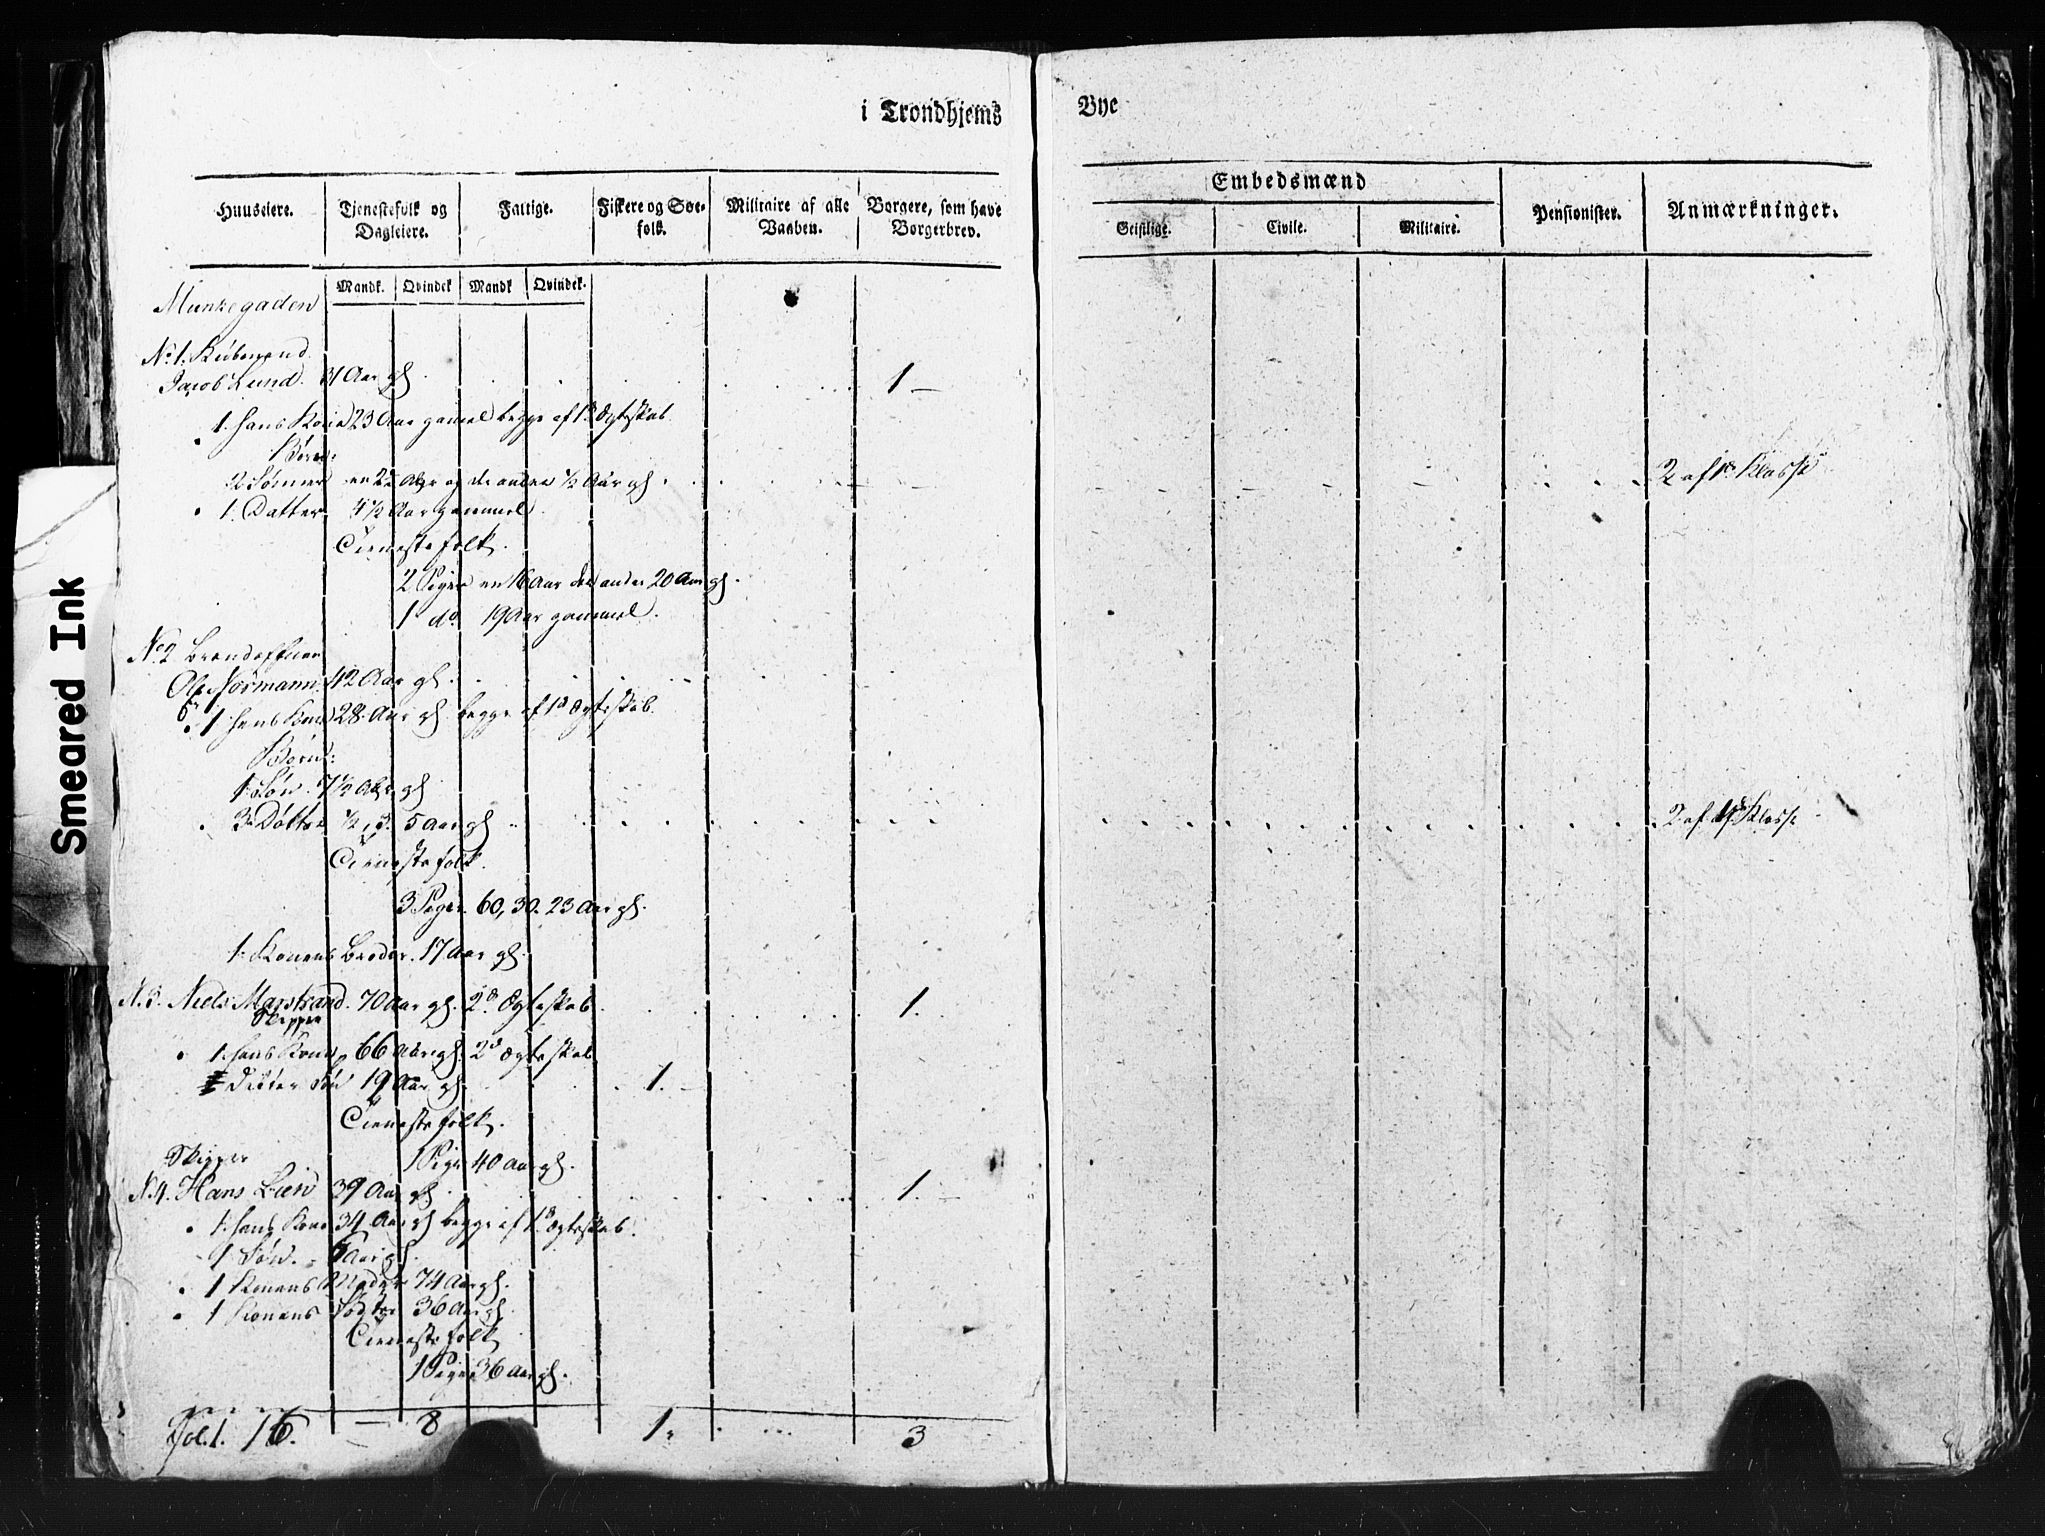 i Trondhjems Bye
Huuseiere. Tjenestefolk og Dagleiere. Fattige. Fiskere og Søe-folk. Militaire af alle Vaaben. Borgere, som have Borgerbrev.
Embedsmænd
Geistlige. Civile. Militaire. Pensionister. Anmærkninger.
Mandk. Qvindek Mandk Qvindek.
Munkegaden
No 1. Kiøbmand
Jacob Lund. 31 Aar gl. 1 —
1. Hans Kone 23 Aar gamel begge af 1ste Ægteskab
Børn:
2 Sønner en 2½ Aar og de anden ½ Aar gl. 2 af 1ste Klasse
1. Datter 4½ Aar gammel
Tienestefolk.
2 Piger en 16 Aar den anden 20 Aar gl.
1 do. 19 Aar gammel.
No 2
Ole Normann. 42 Aar gl.
1 Hans Kone 28 Aar gl. begge af 1ste Ægteskab.
Børn:
1 Søn. 7½ Aar gl
3 Døttre ½, 3. 5 Aar gl 2 af 1ste Klasse
Tienestefolk.
3 Piger. 60, 30. 23 Aar gl.
1. Konens Broder. 17 Aar gl.
N. 3. Niels Marstrand. 70 Aar gl. 2d Ægteskab 1.
Skipper
1. Hans Kone 66 Aar gl. 2d Ægteskab
Søn 19 Aar gl 1.
Tienestefolk.
Skipper 1 Pige 40 Aar gl.
N. 4. Hans Lien 39 Aar gl. 1. —
1. Hans Kone 34 Aar gl begge af 1ste Ægteskab.
1 Søn. Aar gl.
1 Konens Moder 74 Aar gl.
1 Konens Søster 36 Aar gl.
Tienestefolk
1 Pige 36 Aar gl.
Fol. 1. 16. — 8 1. 3
Smeared Ink